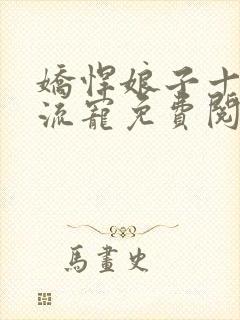 嬌悍娘子十
流寵免費閱
馬畫史